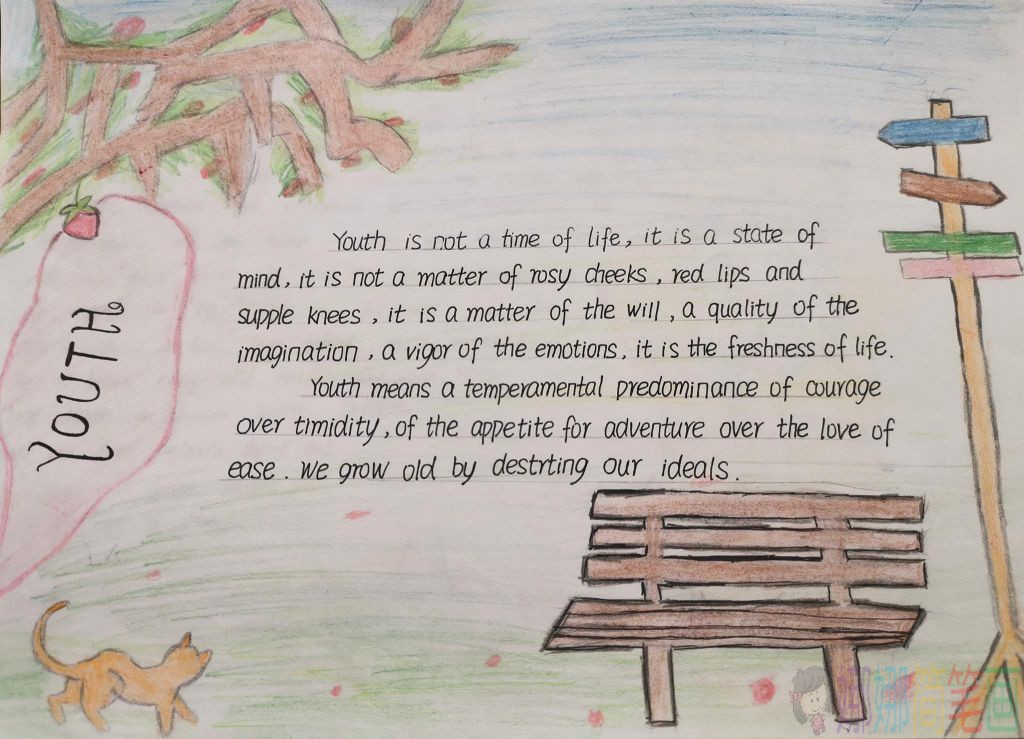 YOUTH
Youth is not a time of life, it is a state of
mind, it is not a matter of rosy cheeks, red lips and
supple knees, it is a matter of the will, a quality of the
imagination, a vigor of the emotions, it is the freshness of life.
Youth means a temperamental predominance of courage
over timidity, of the appetite for adventure over the love of
ease. we grow old by destrting our ideals.
娜娜简笔画